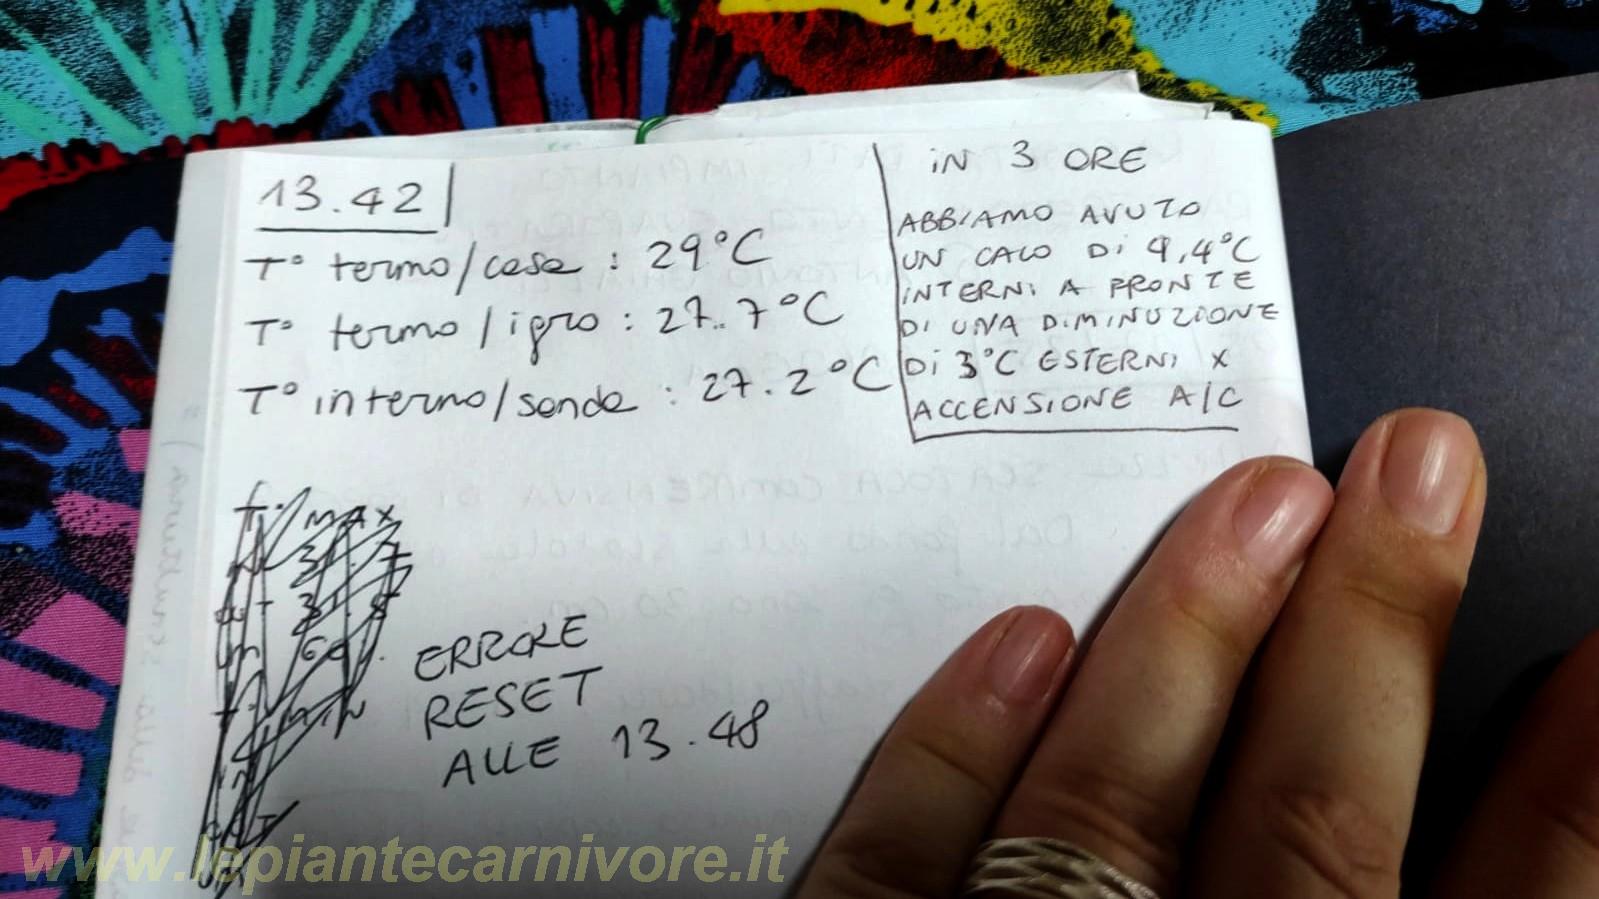 13.42
T° termo/casa : 29°C
T° termo/igro : 27.7°C
T° interno/sonda : 27.2°C
iN 3 ORE
ABBIAMO AVUTO
UN CALO Di 4,4°C
iNTERNi A FRONTE
Di UNA DiMiNUZIONE
Di 3°C ESTERNi X
ACCENSIONE A/C
MAX
MIN
ERRORE
RESET
ALLE 13.48
www.lepiantecarnivore.it